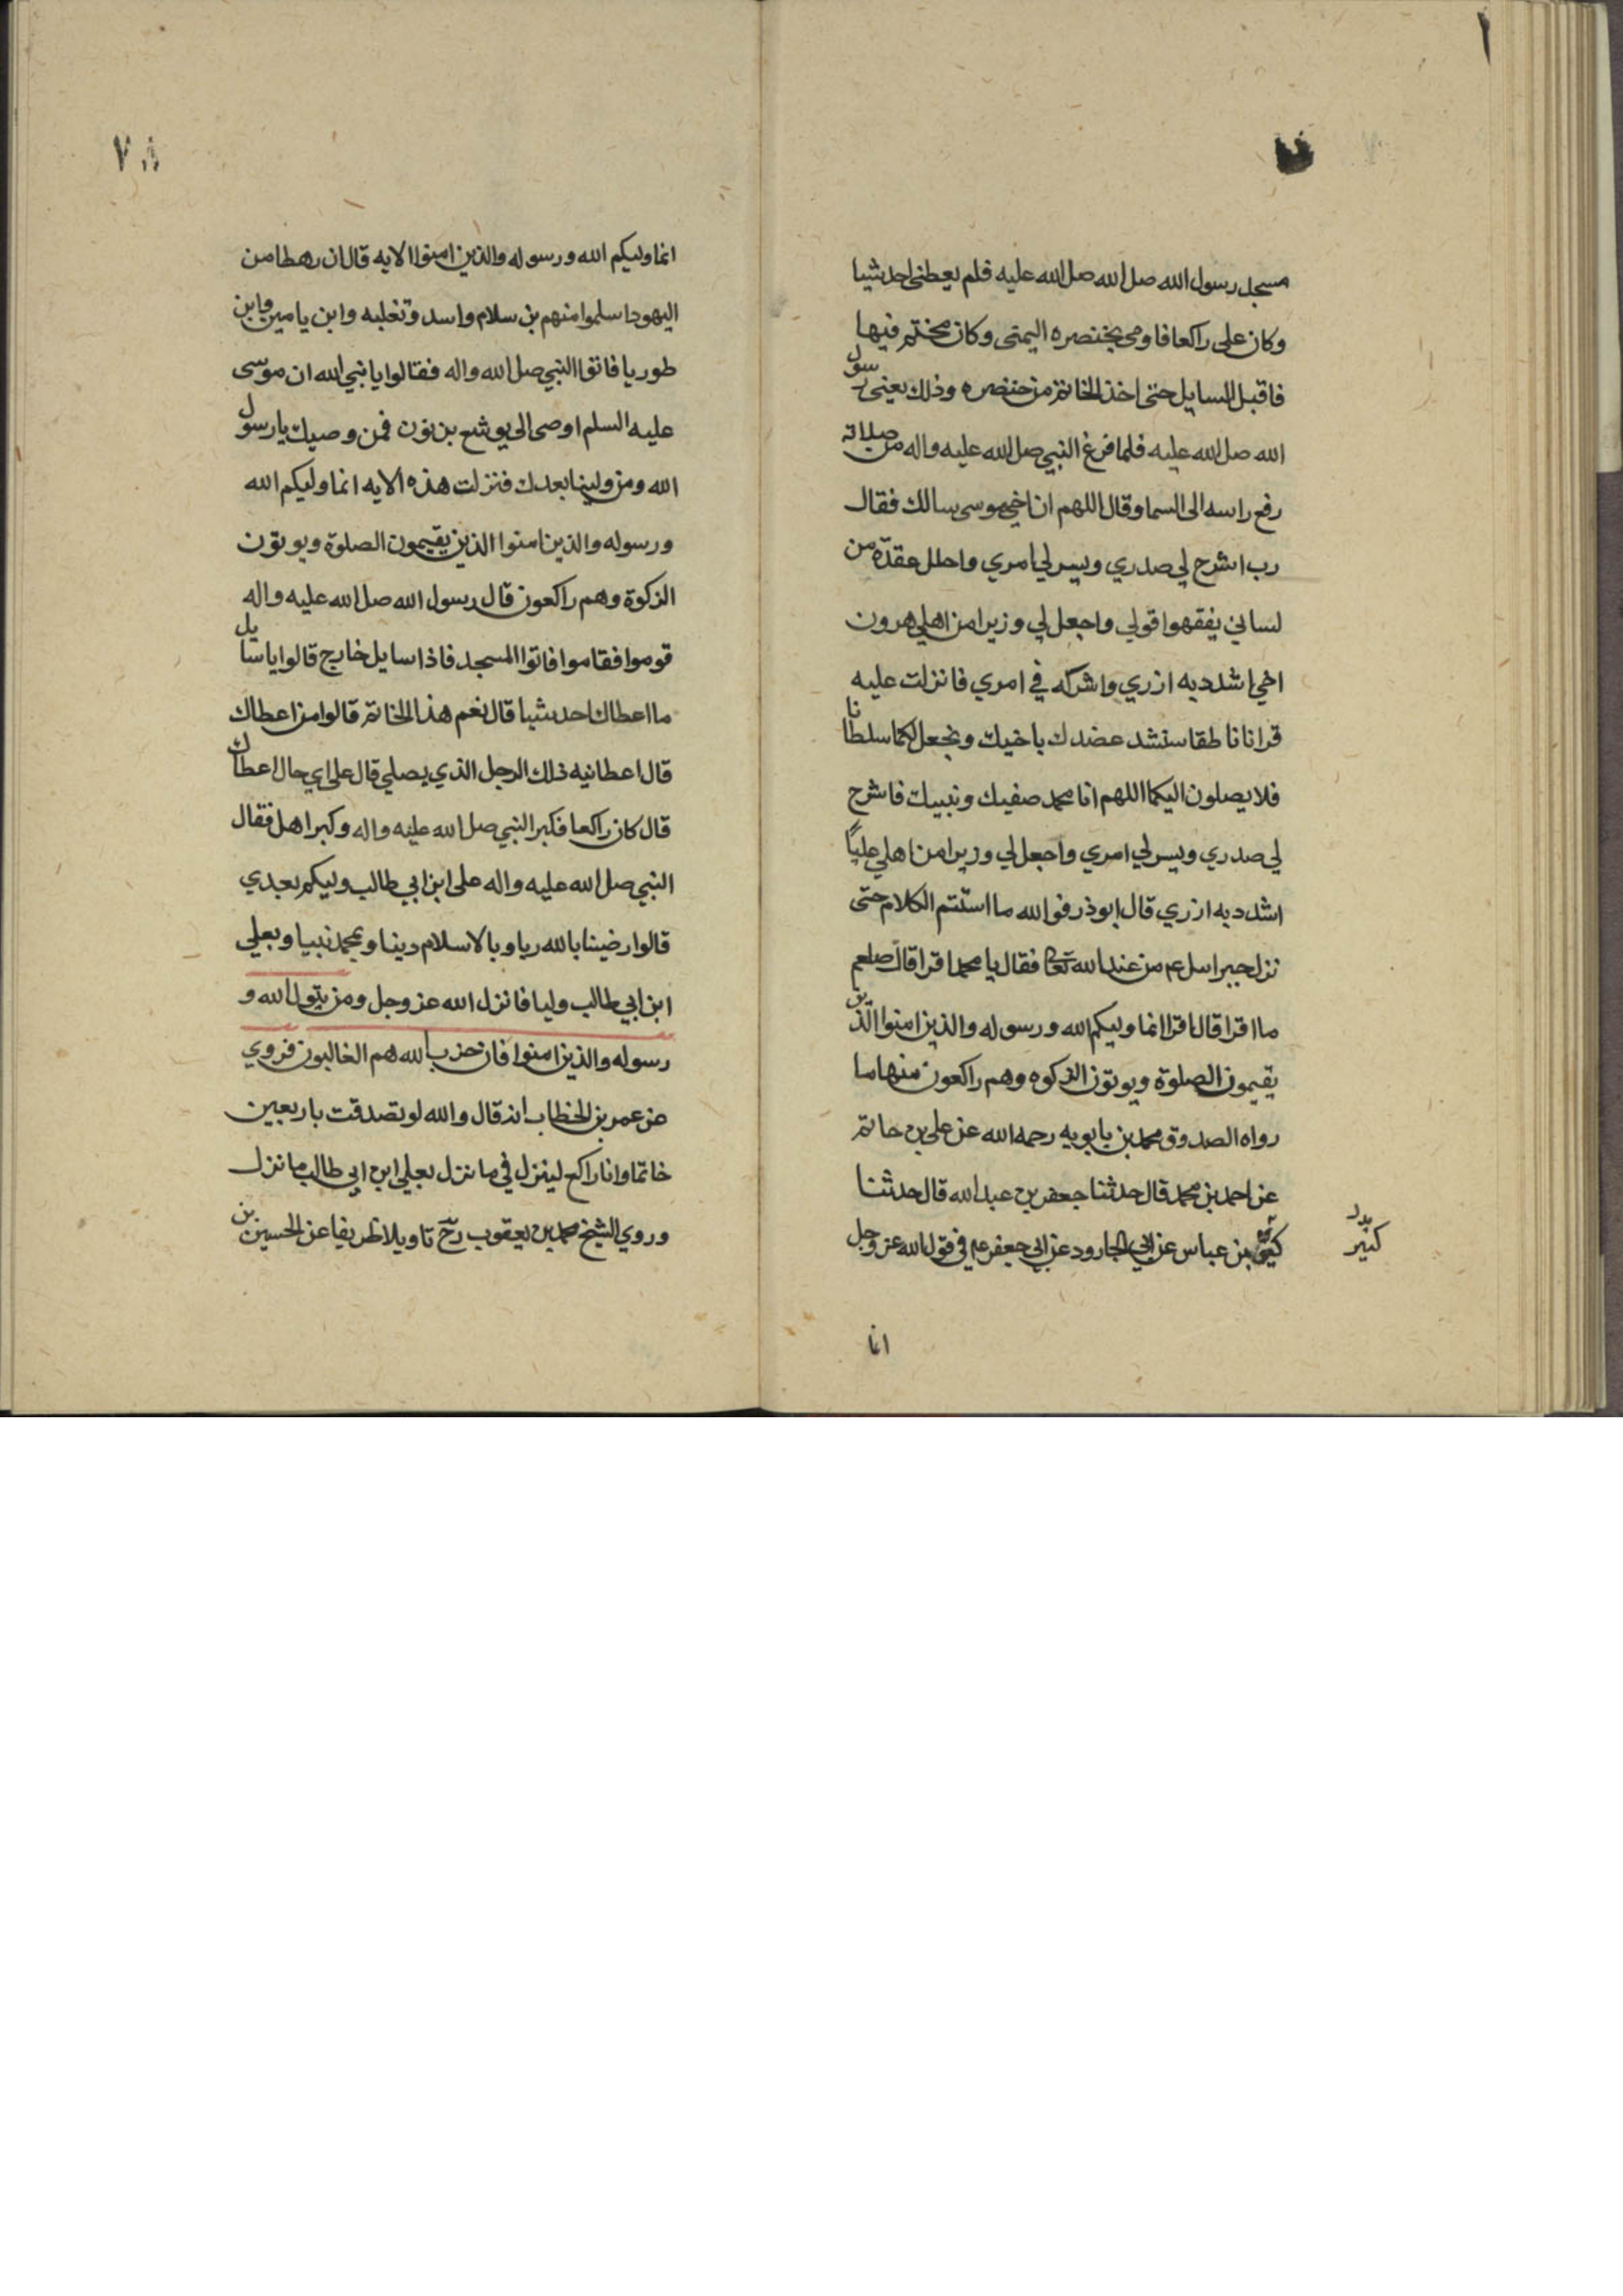 مسجد رسول الله صل الله صل الله عليه فلم يعطني احد شيا
وكان على راكعا فاومى بخنصره اليمنى وكان مختم فيها
فاقبل السايل حتى اخذ الخاتم من خنصره وذلك بعنى رسول
الله صل الله عليه فلما فرغ النبي صل الله عليه واله من صلاته
رفع راسه الى السما وقال اللهم ان اخي موسى سالك فقال
رب اشرح لي صدري ويسر لي امري واحلل عقدة من
لساني يفقهوا قولي واجعل لي وزيرا من اهلي هرون
اخي اشدد به ازري واشركه في امري فانزلت عليه
قرانا ناطقا سنشد عضدك باخيك ونجعل لكما سلطانا
فلا يصلون اليكما اللهم انا محمد صفيك ونبيك فاشرح
لي صدري ويسر لي امري واجعل لي وزيرا من اهلي علياً
اشدد به ازري قال ابوذر فوالله ما استتم الكلام حتى
نزل جبراسل عم من عند الله تعا فقال يا محمد اقرا قال صلعم
ما اقرا قال اقرا انما وليكم الله ورسوله والذين امنوا الذين
يقيمون الصلوة ويوتون الزكوه وهم راكعون منها ما
رواه الصدوق محمد بن بابويه رحمه الله عن علي بن حاتم
عن احمد بن محمد قال حدثنا جعفر بن عبد الله قال حدثنا
بن عباس عن ابي الجارود عن ابي جعفر عم في قول الله عز وجل
كثير
انما
٧٨
انما وليكم الله ورسوله والذين امنوا الايه قال ان رهطا من
اليهود اسلموا منهم بن سلام واسد وثعلبه وابن يامين وابن
طوريا فاتوا النبي صل الله واله فقالوا يا نبي الله ان موسى
عليه السلم اوصى الى يوشع بن نون فمن وصيك يا رسول
الله ومن ولينا بعدك فنزلت هذه الايه انما وليكم الله
ورسوله والذين امنوا الذين يقيمون الصلوة ويوتون
الزكوة وهم راكعون قال رسول الله صل الله عليه واله
قوموا فقاموا فاتوا المسجد فاذا سايل خارج قالوا يا سايل
ما اعطاك احد شيا قال نعم هذا الخاتم قالوا من اعطاك
قال اعطانيه ذلك الرجل الذي يصلي قال على اي حال اعطاك
قال كان راكعا فكبر النبي صل الله عليه واله وكبر اهل فقال
النبي صل الله عليه واله على ابن ابي طالب وليكم بعدي
قالوا رضينا بالله ربا وبالاسلام دينا وبمحمد نبيا وبعلي
ابن ابي طالب وليا فانزل الله عز وجل ومن يتول الله و
رسوله والذين امنوا فان حزب الله هم الغالبون فروي
عن عمر بن الخطاب انه قال والله لو تصدقت باربعين
خاتما وانا راكع لينزل في ما نزل بعلي ابن ابي طالب ما نزل
وروي الشيخ محمد بن يعقوب رح تاويلا ظريفا عن الحسين بن